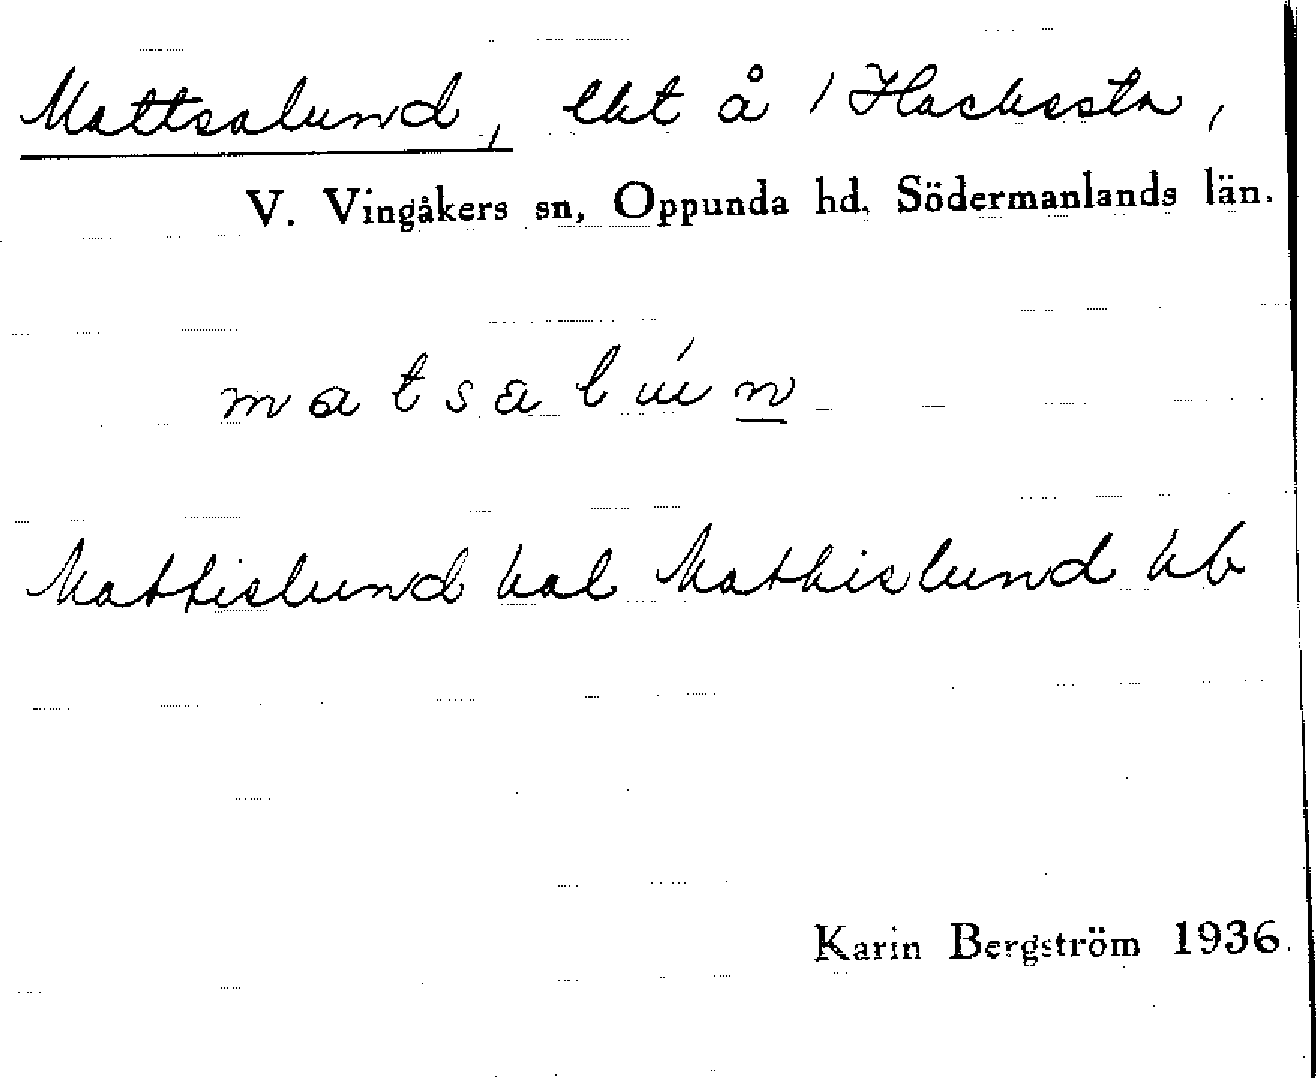 Mattsalund, lht å 1 Hacksta,
V. Vingåkers sn, Oppunda hd, Södermanlands län.
matsalún
Mattislund hal Mathislund kb
Karin Bergström 1936.